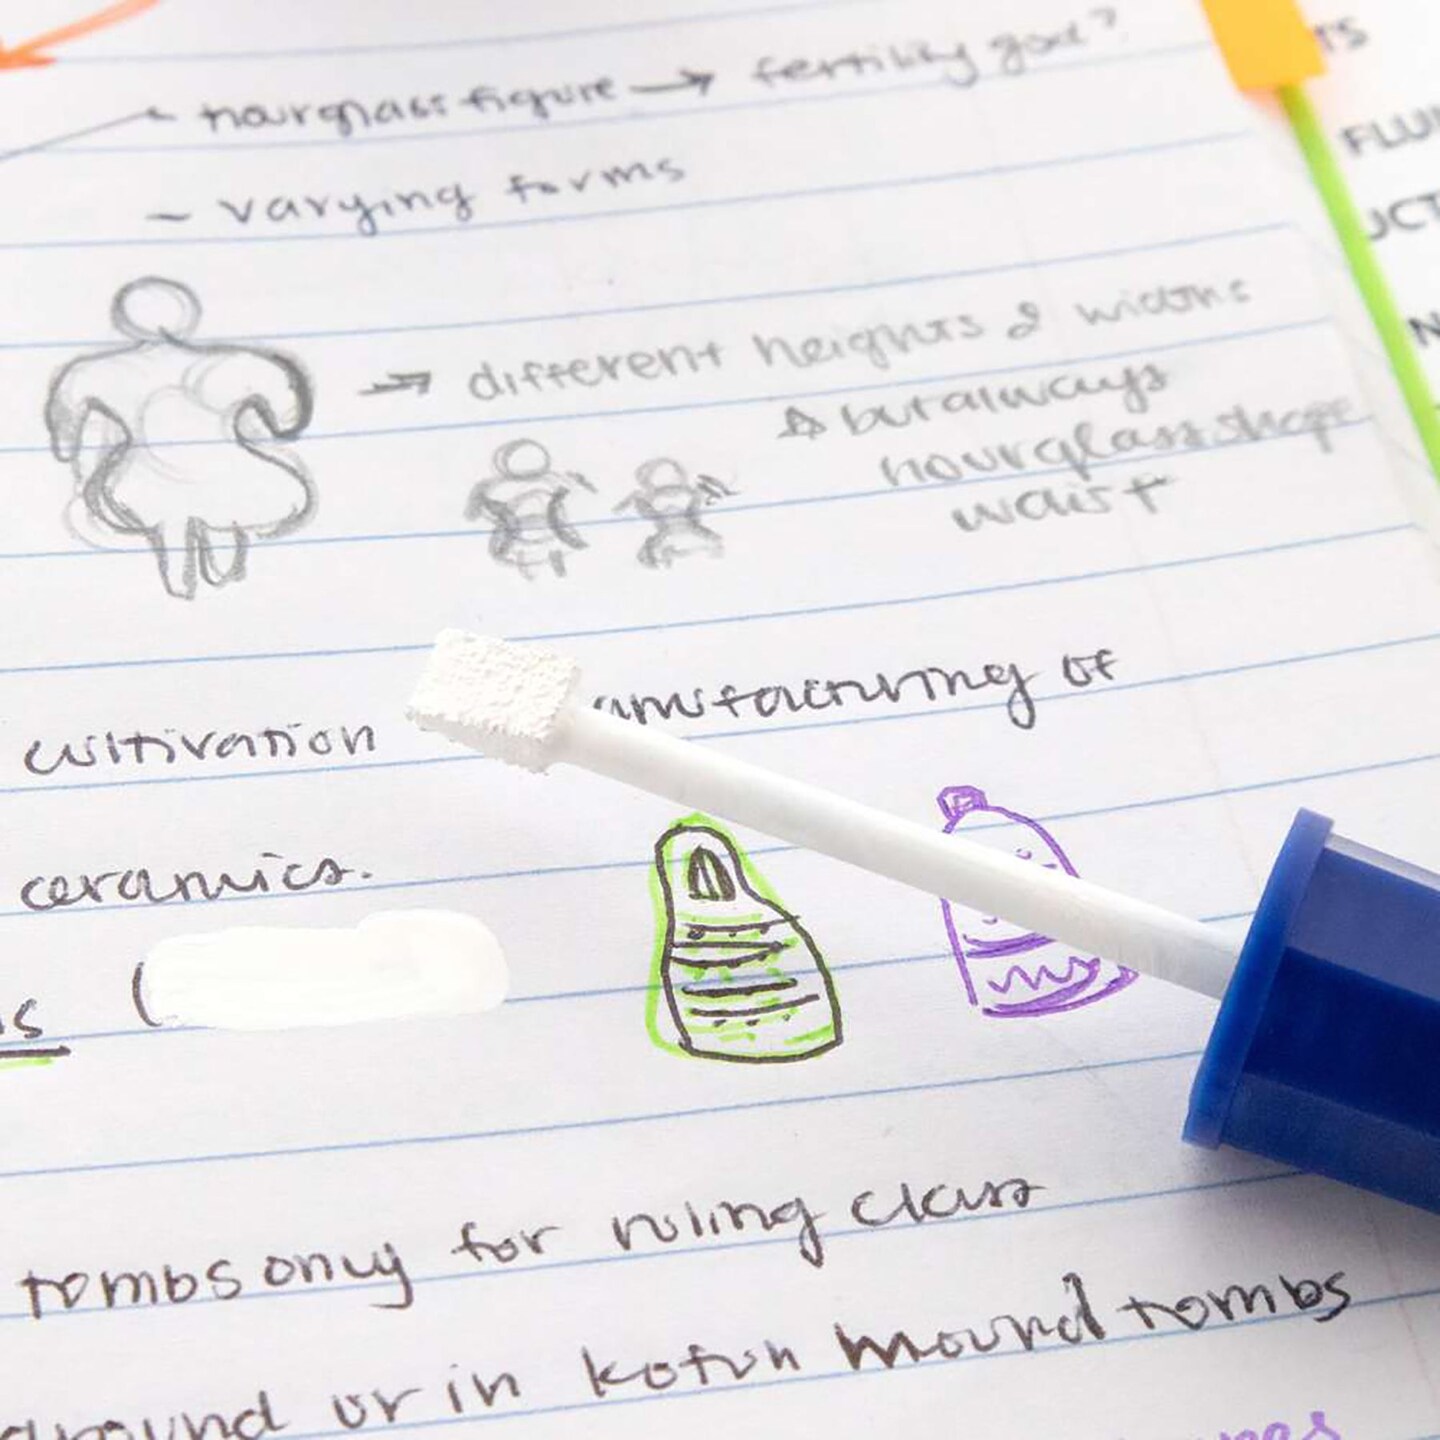 - hourglass figure → fertility god?
- varying forms
→ different heights & widths
☆ but always
hourglass shape
waist
cultivation anufacturing of
ceramics.
(
tombs only for ruling class
ground or in kofun mound tombs
TS
FLUI
UCT
N